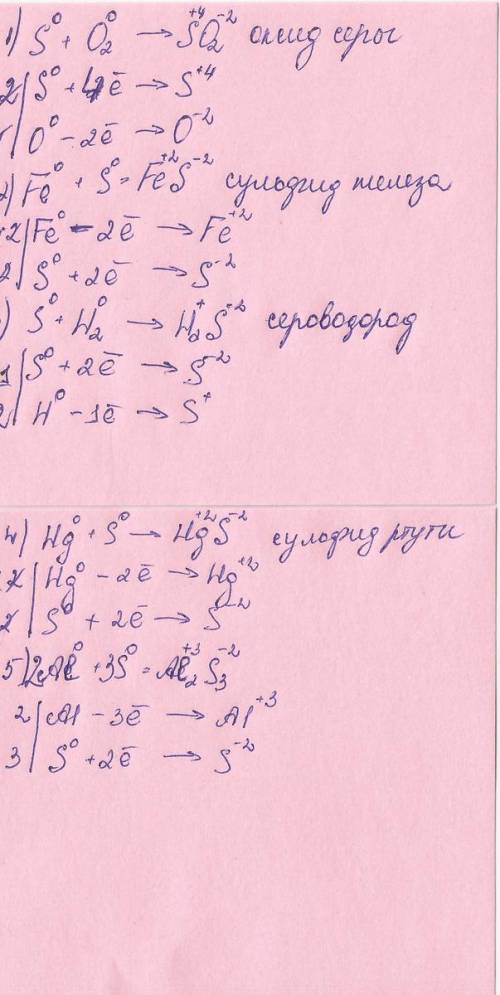 1) S⁰ + O₂⁰ → S⁺⁴O₂⁻² оксид серы
2| S⁰ + 4ē → S⁺⁴
| O⁰ - 2ē → O⁻²
2) Fe⁰ + S⁰ = Fe⁺²S⁻² сульфид железа
2| Fe⁰ - 2ē → Fe⁺²
2| S⁰ + 2ē → S⁻²
) S⁰ + H₂⁰ → H₂⁺S⁻² сероводород
1| S⁰ + 2ē → S⁻²
2| H⁰ - 1ē → S⁺
4) Hg⁰ + S⁰ → Hg⁺²S⁻² сульфид ртути
2| Hg⁰ - 2ē → Hg⁺²
2| S⁰ + 2ē → S⁻²
5) 2Al⁰ + 3S⁰ = Al₂⁺³S₃⁻²
2| Al - 3ē → Al⁺³
3| S⁰ + 2ē → S⁻²